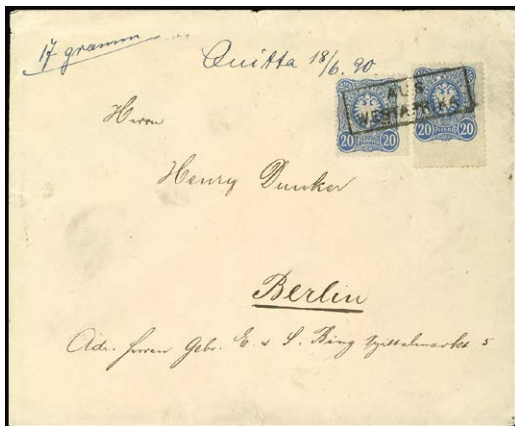 17 gramm
Quitta 18/6. 90.
AUS
WESTAFRIKA
20 PFENNIG 20
20 PFENNIG 20
Herrn
Henry Dunker
Berlin
Adr. Herren Gebr. E. & S. Bing Spittelmarkt 5